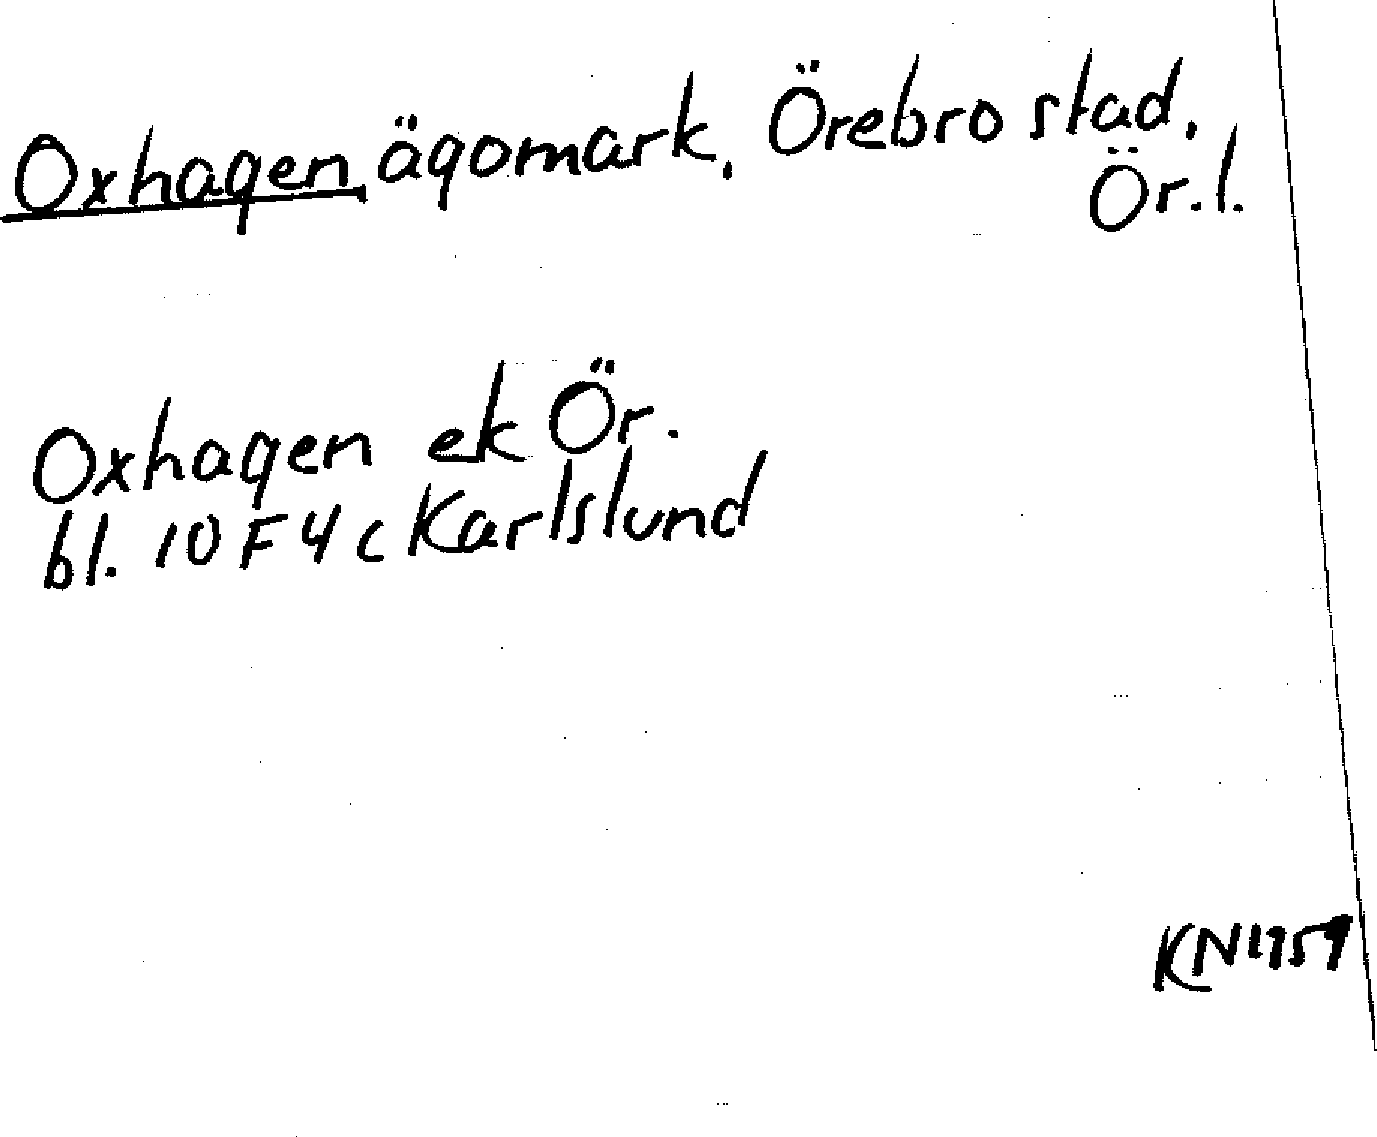 Oxhagen, ägomark, Örebro stad,
Ör. l.
Oxhagen ek Ör.
bl. 10 F 4 c Karlslund
KN 1957